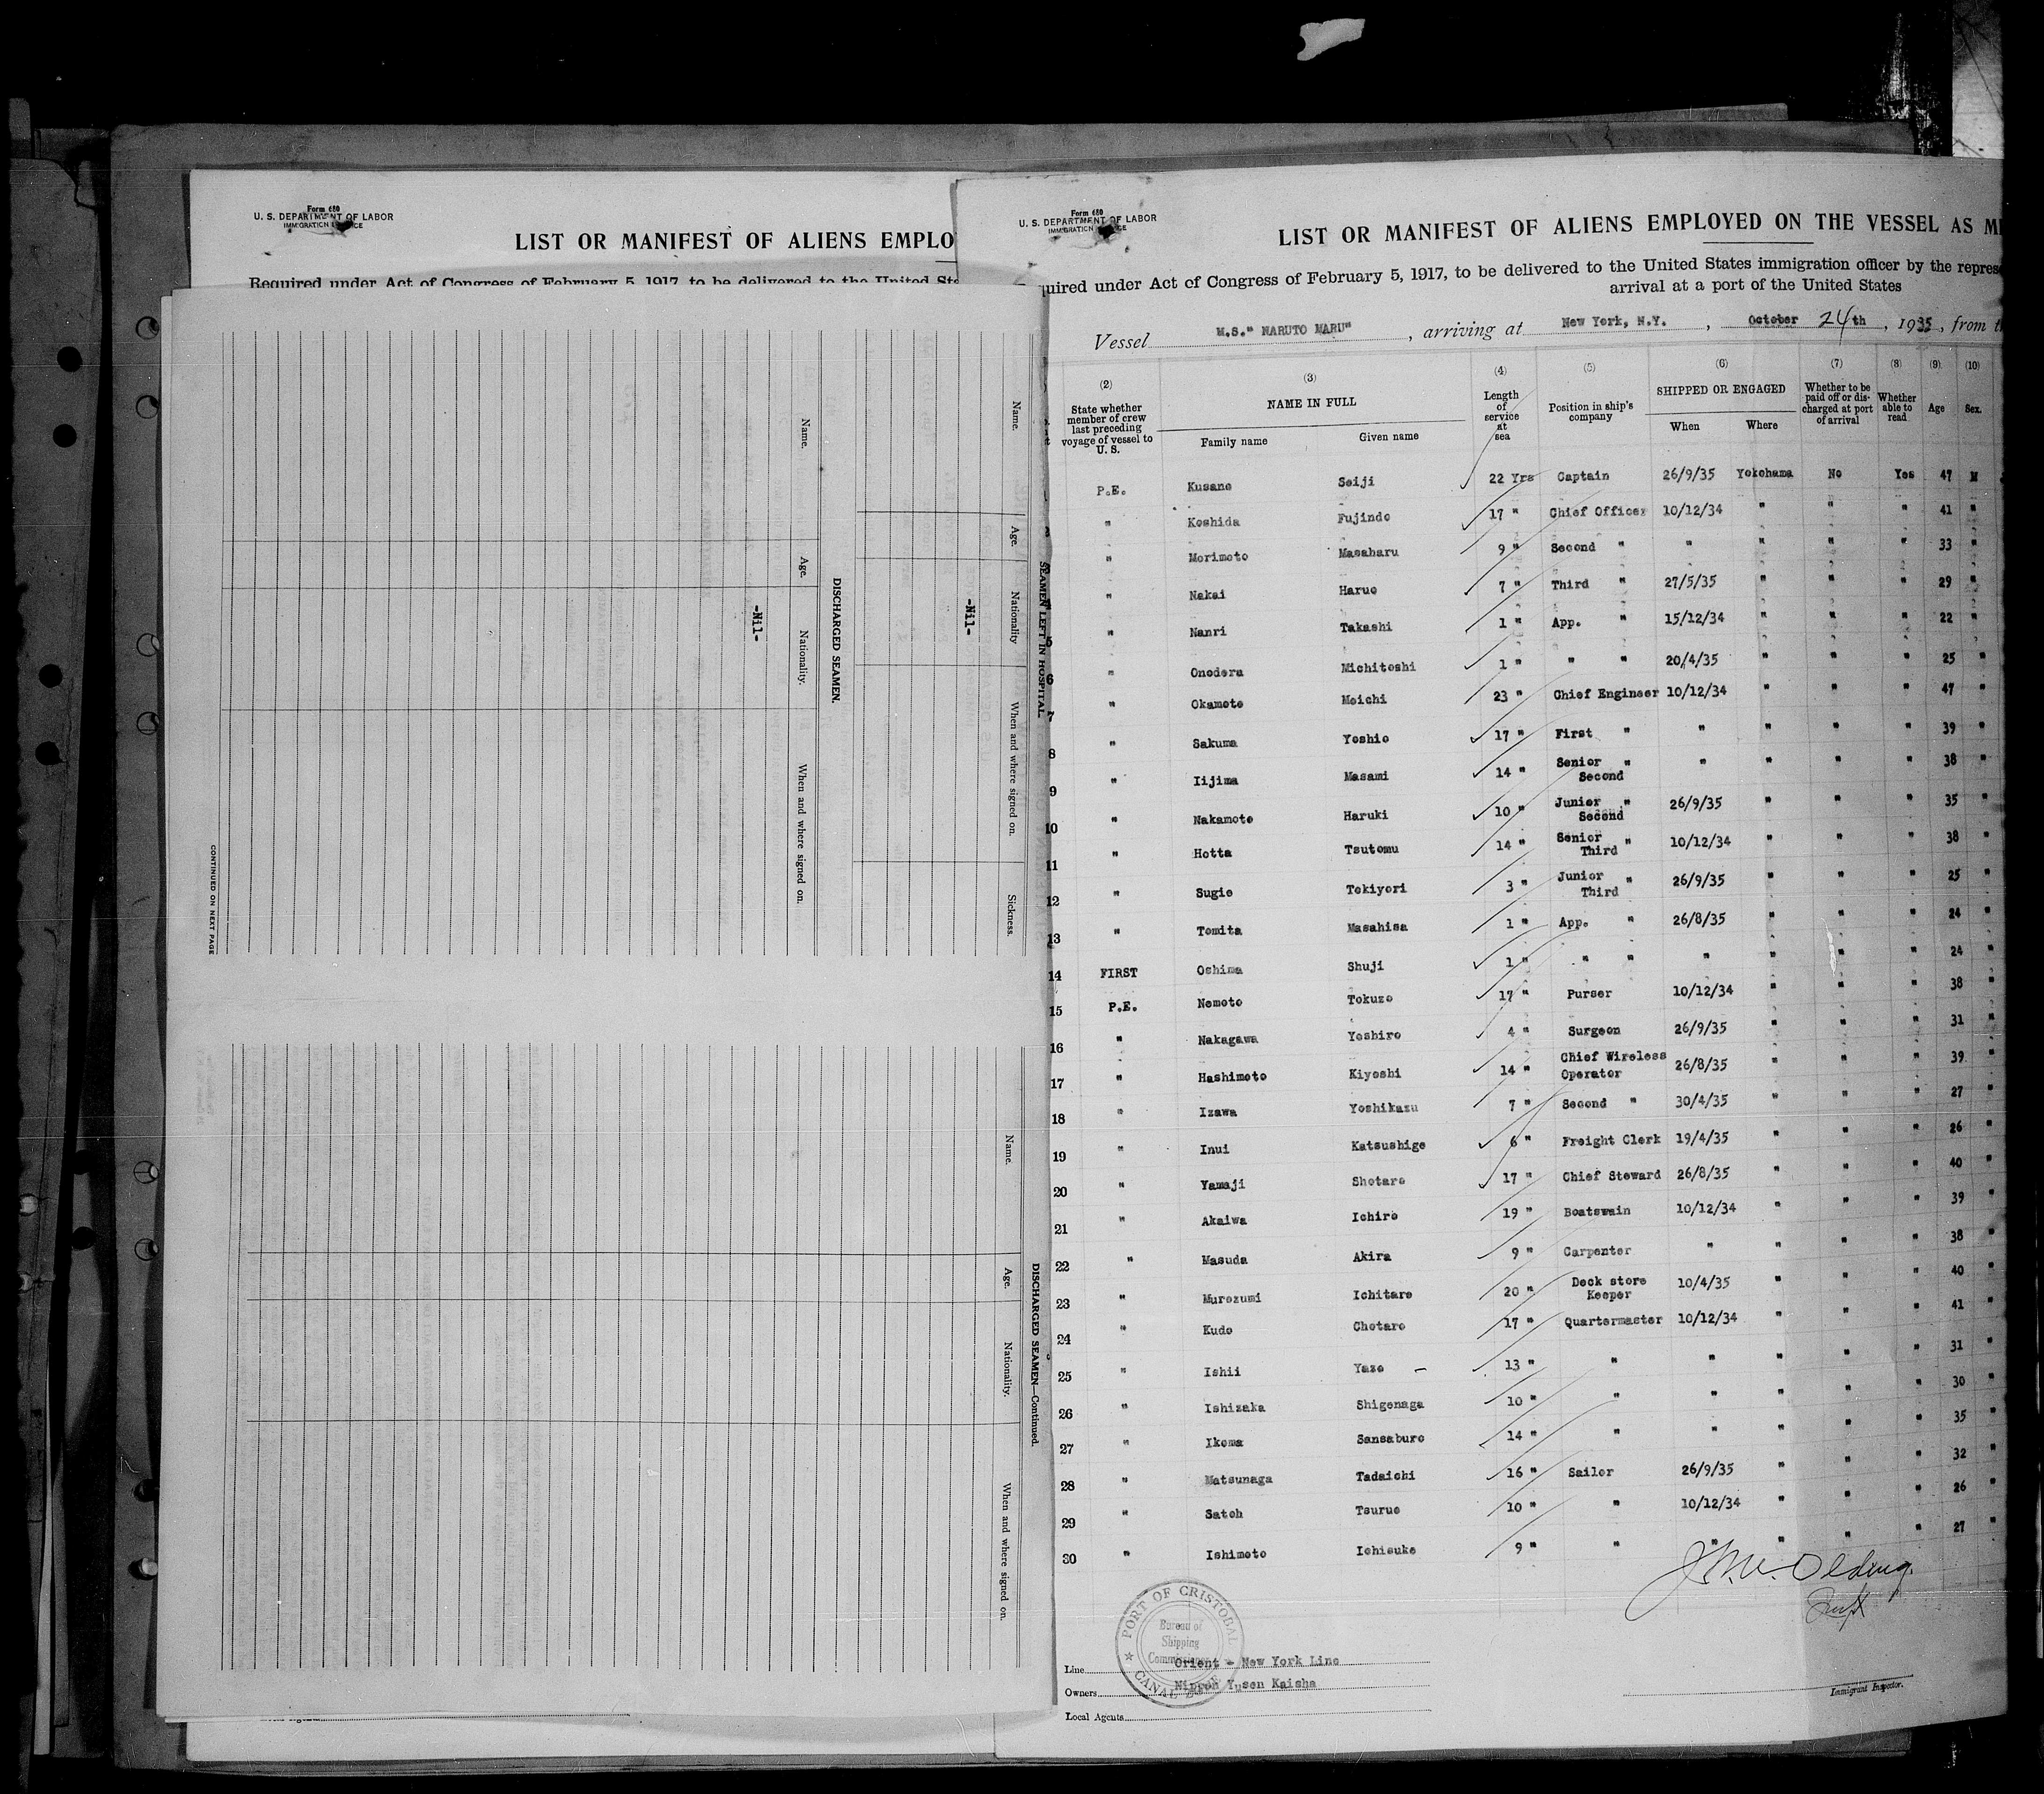 Form 680
U. S. DEPARTMENT OF LABOR
LIST OR MANIFEST OF ALIENS EMPLO
Required under Act of Congress of February 5, 1917, to be delivered to the United Sta
SEAMEN LEFT IN HOSPITAL
Name. Age. Nationality When and where signed on. Sickness.
-Nil-
DISCHARGED SEAMEN.
Name. Age. Nationality. When and where signed on.
-Nil-
CONTINUED ON NEXT PAGE
DISCHARGED SEAMEN—Continued.
Name. Age. Nationality. When and where signed on.
Form 680
U. S. DEPARTMENT OF LABOR
LIST OR MANIFEST OF ALIENS EMPLOYED ON THE VESSEL AS M
quired under Act of Congress of February 5, 1917, to be delivered to the United States immigration officer by the represe
arrival at a port of the United States
Vessel M.S." NARUTO MARU" , arriving at New York, N.Y. , October 24th , 1935 , from t
(2) (3) (4) (5) (6) (7) (8) (9) (10)
State whether member of crew last preceding voyage of vessel to U. S. NAME IN FULL Family name Given name Length of service at sea Position in ship's company SHIPPED OR ENGAGED When Where Whether to be paid off or discharged at port of arrival Whether able to read Age Sex.
P.E. Kusano Seiji 22 Yrs Captain 26/9/35 Yokohama No Yes 47 M
" Koshida Fujindo 17 " Chief Officer 10/12/34 " " " 41 "
" Morimoto Masaharu 9 " Second " " " " " 33 "
4 " Nakai Haruo 7 " Third " 27/5/35 " " " 29 "
5 " Nanri Takashi 1 " App. " 15/12/34 " " " 22 "
6 " Onodera Michitoshi 1 " " " 20/4/35 " " " 25 "
7 " Okamoto Meichi 23 " Chief Engineer 10/12/34 " " " 47 "
8 " Sakuma Yoshio 17 " First " " " " " 39 "
9 " Iijima Masami 14 " Senior Second " " " " " 38 "
10 " Nakamoto Haruki 10 " Junior Second " 26/9/35 " " " 35 "
11 " Hotta Tsutomu 14 " Senior Third " 10/12/34 " " " 38 "
12 " Sugie Tokiyori 3 " Junior Third " 26/9/35 " " " 25 "
13 " Tomita Masahisa 1 " App. " 26/8/35 " " " 24 "
14 FIRST Oshima Shuji 1 " " " " " " " 24 "
15 P.E. Nemoto Tokuzo 17 " Purser 10/12/34 " " " 38 "
16 " Nakagawa Yoshiro 4 " Surgeon 26/9/35 " " " 31 "
17 " Hashimoto Kiyoshi 14 " Chief Wireless Operator 26/8/35 " " " 39 "
18 " Izawa Yoshikazu 7 " Second " 30/4/35 " " " 27 "
19 " Inui Katsushige 6 " Freight Clerk 19/4/35 " " " 26 "
20 " Yamaji Shotaro 17 " Chief Steward 26/8/35 " " " 40 "
21 " Akaiwa Ichiro 19 " Boatswain 10/12/34 " " " 39 "
22 " Masuda Akira 9 " Carpenter " " " " 38 "
23 " Murozumi Ichitaro 20 " Deck store Keeper 10/4/35 " " " 40 "
24 " Kudo Chotaro 17 " Quartermaster 10/12/34 " " " 41 "
25 " Ishii Yazo 13 " " " " " " 31 "
26 " Ishizaka Shigenaga 10 " " " " " " 30 "
27 " Ikoma Sansaburo 14 " " " " " " 35 "
28 " Matsunaga Tadaichi 16 " Sailor 26/9/35 " " " 32 "
29 " Satoh Tsuruo 10 " " 10/12/34 " " " 26 "
30 " Ishimoto Ichisuke 9 " " " " " " 27 "
PORT OF CRISTOBAL
Bureau of
Shipping
CANAL
Line Orient - New York Line
Owners Nippon Yusen Kaisha
Local Agents
Immigrant Inspector.